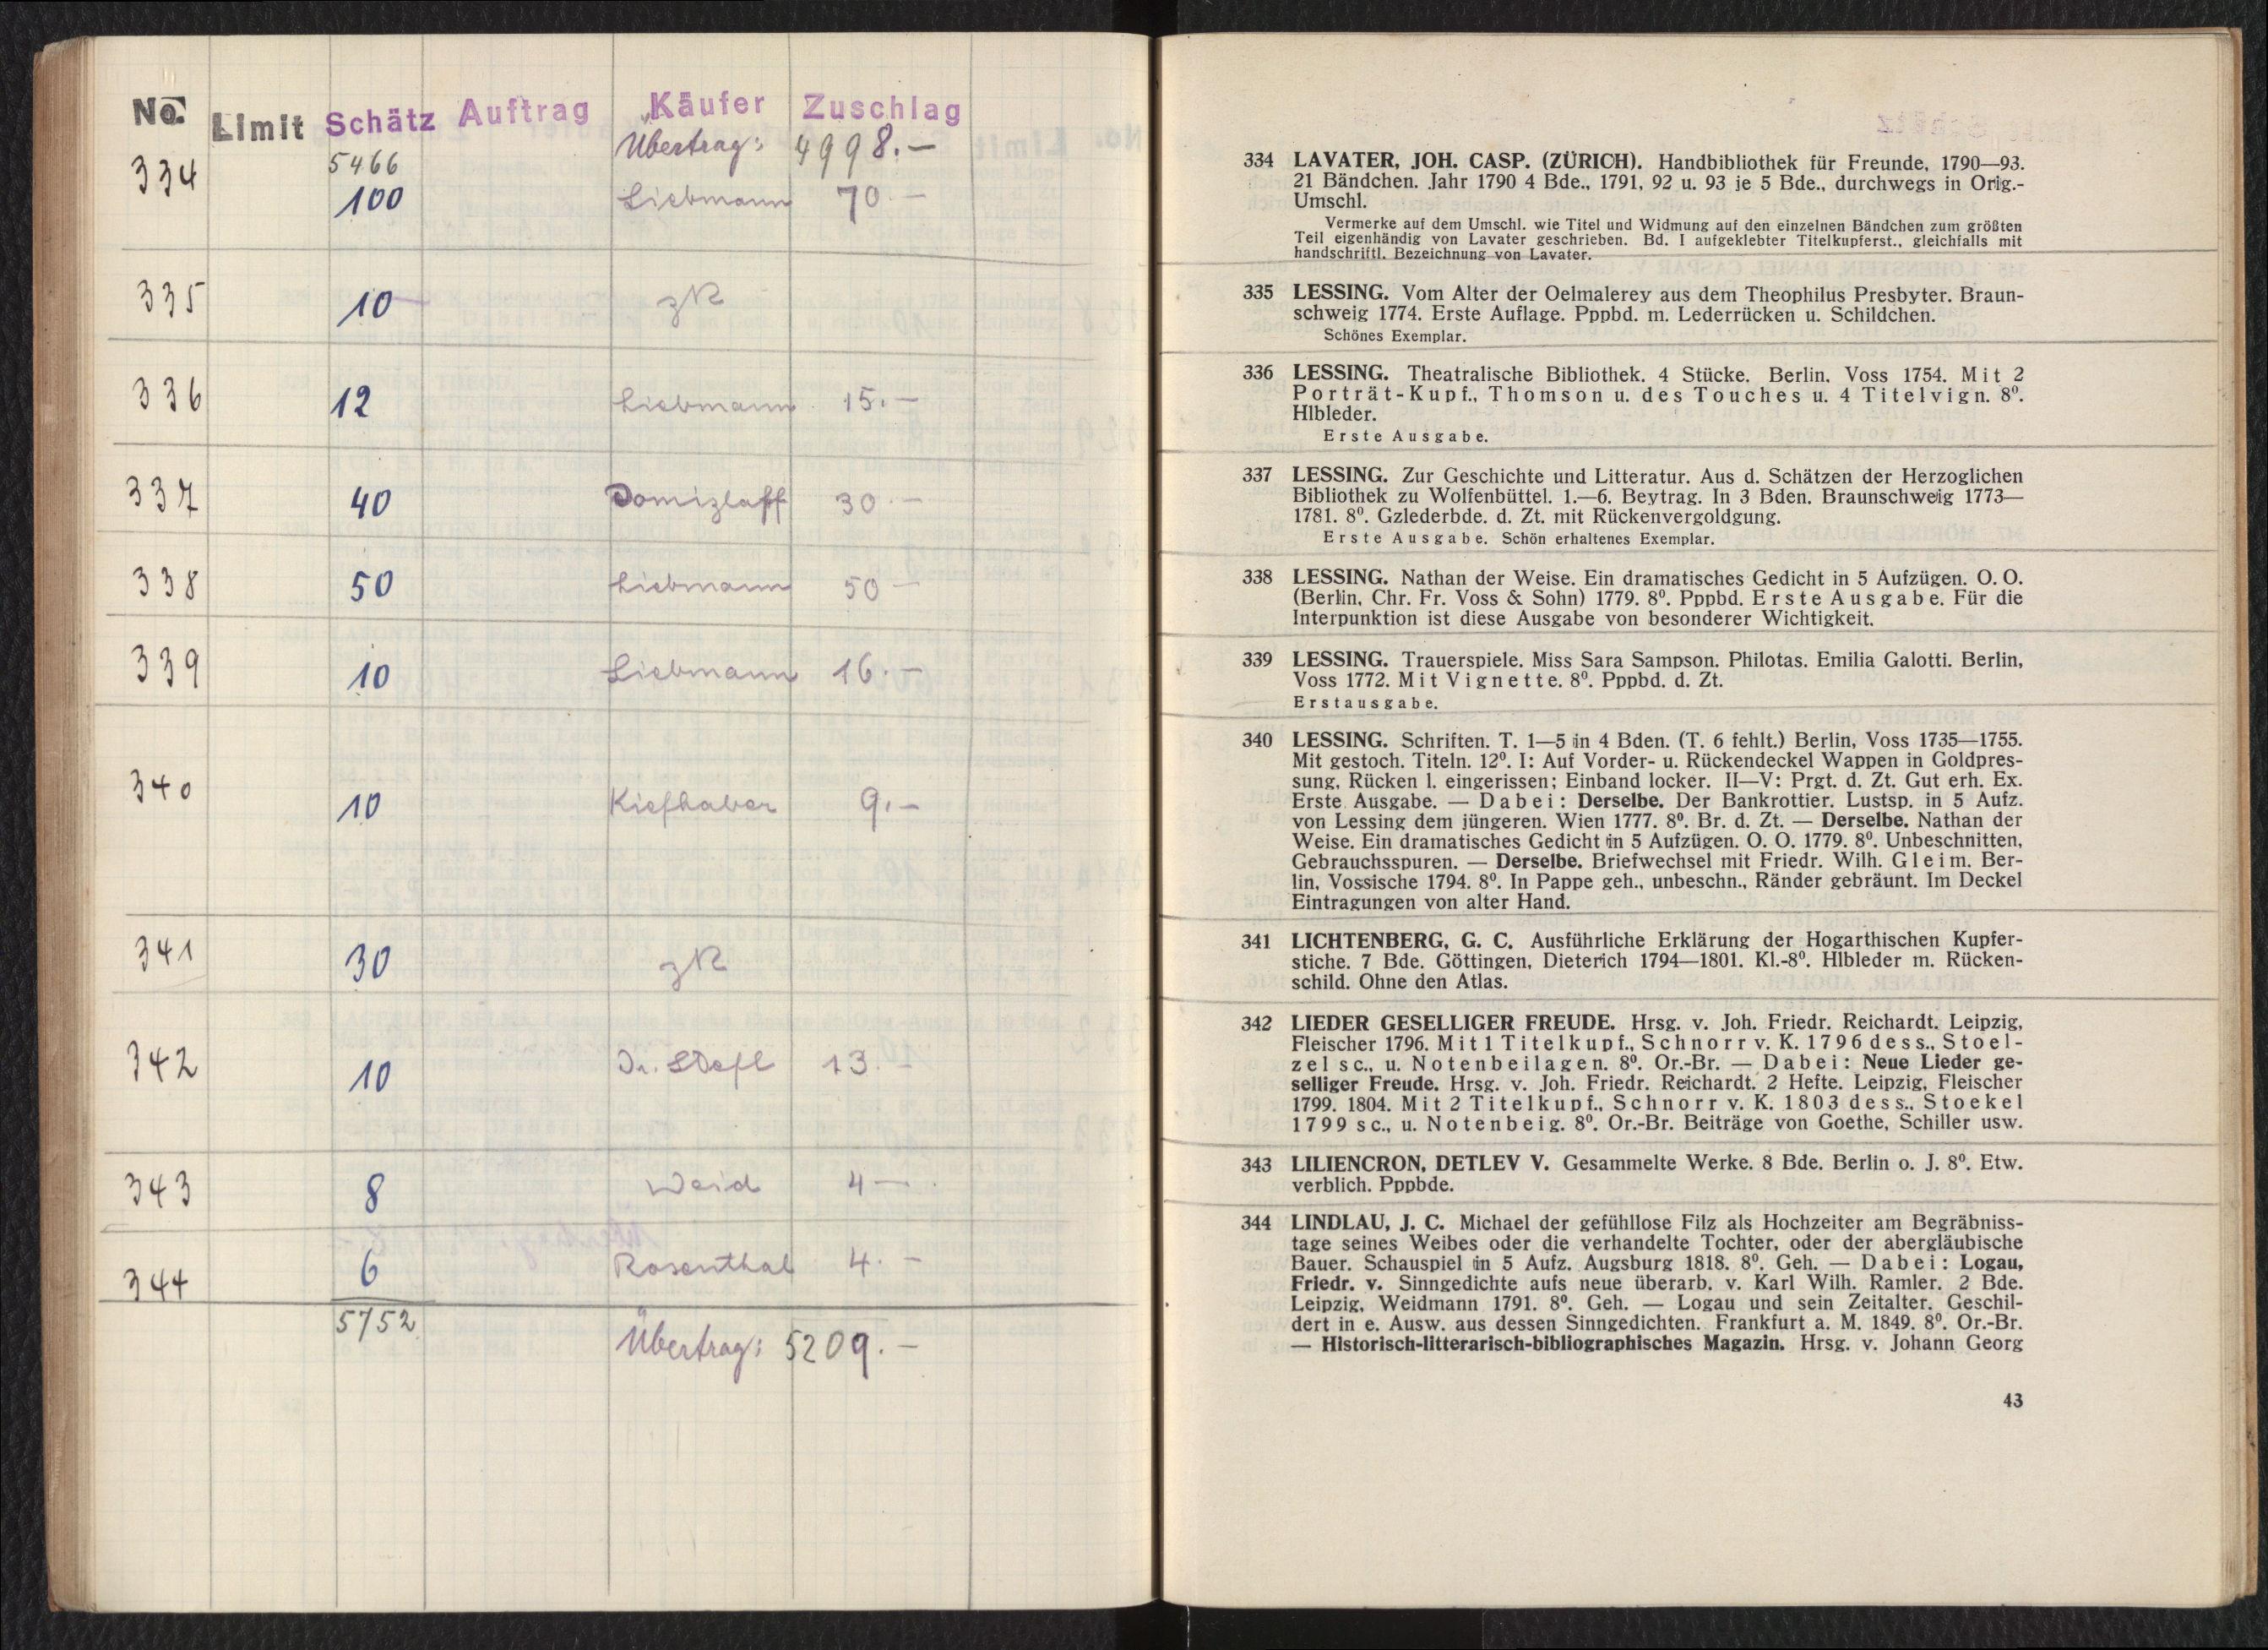 No. Limit Schätz Auftrag Käufer Zuschlag
Übertrag: 4998.—
334 5466
100 Liebmann 70.—
335 10 zR
336 12 Liebmann 15.—
337 40 Domizlaff 30.—
338 50 Liebmann 50—
339 10 Liebmann 16.—
340 10 Kiefhaber 9.—
341 30 zR
342 10 Dr. Stefl 13.—
343 8 Weid 4—
344 6 Rosenthal 4.—
5752 Übertrag: 5209.—
334 LAVATER, JOH. CASP. (ZÜRICH). Handbibliothek für Freunde, 1790—93.
21 Bändchen. Jahr 1790 4 Bde., 1791, 92 u. 93 je 5 Bde., durchwegs in Orig.-
Umschl.
Vermerke auf dem Umschl. wie Titel und Widmung auf den einzelnen Bändchen zum größten
Teil eigenhändig von Lavater geschrieben. Bd. I aufgeklebter Titelkupferst., gleichfalls mit
handschriftl. Bezeichnung von Lavater.
335 LESSING. Vom Alter der Oelmalerey aus dem Theophilus Presbyter. Braun-
schweig 1774. Erste Auflage. Pppbd. m. Lederrücken u. Schildchen.
Schönes Exemplar.
336 LESSING. Theatralische Bibliothek. 4 Stücke. Berlin. Voss 1754. Mit 2
Porträt-Kupf., Thomson u. des Touches u. 4 Titelvign. 8⁰.
Hlbleder.
Erste Ausgabe.
337 LESSING. Zur Geschichte und Litteratur. Aus d. Schätzen der Herzoglichen
Bibliothek zu Wolfenbüttel. 1.—6. Beytrag. In 3 Bden. Braunschweig 1773—
1781. 8⁰. Gzlederbde. d. Zt. mit Rückenvergoldgung.
Erste Ausgabe. Schön erhaltenes Exemplar.
338 LESSING. Nathan der Weise. Ein dramatisches Gedicht in 5 Aufzügen. O. O.
(Berlin, Chr. Fr. Voss & Sohn) 1779. 8⁰. Pppbd. Erste Ausgabe. Für die
Interpunktion ist diese Ausgabe von besonderer Wichtigkeit.
339 LESSING. Trauerspiele. Miss Sara Sampson. Philotas. Emilia Galotti. Berlin,
Voss 1772. Mit Vignette. 8⁰. Pppbd. d. Zt.
Erstausgabe.
340 LESSING. Schriften. T. 1—5 in 4 Bden. (T. 6 fehlt.) Berlin, Voss 1735—1755.
Mit gestoch. Titeln. 12⁰. I: Auf Vorder- u. Rückendeckel Wappen in Goldpres-
sung, Rücken l. eingerissen; Einband locker. II—V: Prgt. d. Zt. Gut erh. Ex.
Erste Ausgabe. — Dabei: Derselbe. Der Bankrottier. Lustsp. in 5 Aufz.
von Lessing dem jüngeren. Wien 1777. 8⁰. Br. d. Zt. — Derselbe. Nathan der
Weise. Ein dramatisches Gedicht in 5 Aufzügen. O. O. 1779. 8⁰. Unbeschnitten,
Gebrauchsspuren. — Derselbe. Briefwechsel mit Friedr. Wilh. Gleim. Ber-
lin, Vossische 1794. 8⁰. In Pappe geh., unbeschn., Ränder gebräunt. Im Deckel
Eintragungen von alter Hand.
341 LICHTENBERG, G. C. Ausführliche Erklärung der Hogarthischen Kupfer-
stiche. 7 Bde. Göttingen, Dieterich 1794—1801. Kl.-8⁰. Hlbleder m. Rücken-
schild. Ohne den Atlas.
342 LIEDER GESELLIGER FREUDE. Hrsg. v. Joh. Friedr. Reichardt. Leipzig,
Fleischer 1796. Mit 1 Titelkupf., Schnorr v. K. 1796 dess., Stoel-
zel sc., u. Notenbeilagen. 8⁰. Or.-Br. — Dabei: Neue Lieder ge-
selliger Freude. Hrsg. v. Joh. Friedr. Reichardt. 2 Hefte. Leipzig, Fleischer
1799. 1804. Mit 2 Titelkupf., Schnorr v. K. 1803 dess., Stoekel
1799 sc., u. Notenbeig. 8⁰. Or.-Br. Beiträge von Goethe, Schiller usw.
343 LILIENCRON, DETLEV V. Gesammelte Werke. 8 Bde. Berlin o. J. 8⁰. Etw.
verblich. Pppbde.
344 LINDLAU, J. C. Michael der gefühllose Filz als Hochzeiter am Begräbniss-
tage seines Weibes oder die verhandelte Tochter, oder der abergläubische
Bauer. Schauspiel in 5 Aufz. Augsburg 1818. 8⁰. Geh. — Dabei: Logau,
Friedr. v. Sinngedichte aufs neue überarb. v. Karl Wilh. Ramler. 2 Bde.
Leipzig, Weidmann 1791. 8⁰. Geh. — Logau und sein Zeitalter. Geschil-
dert in e. Ausw. aus dessen Sinngedichten. Frankfurt a. M. 1849. 8⁰. Or.-Br.
— Historisch-litterarisch-bibliographisches Magazin. Hrsg. v. Johann Georg
43